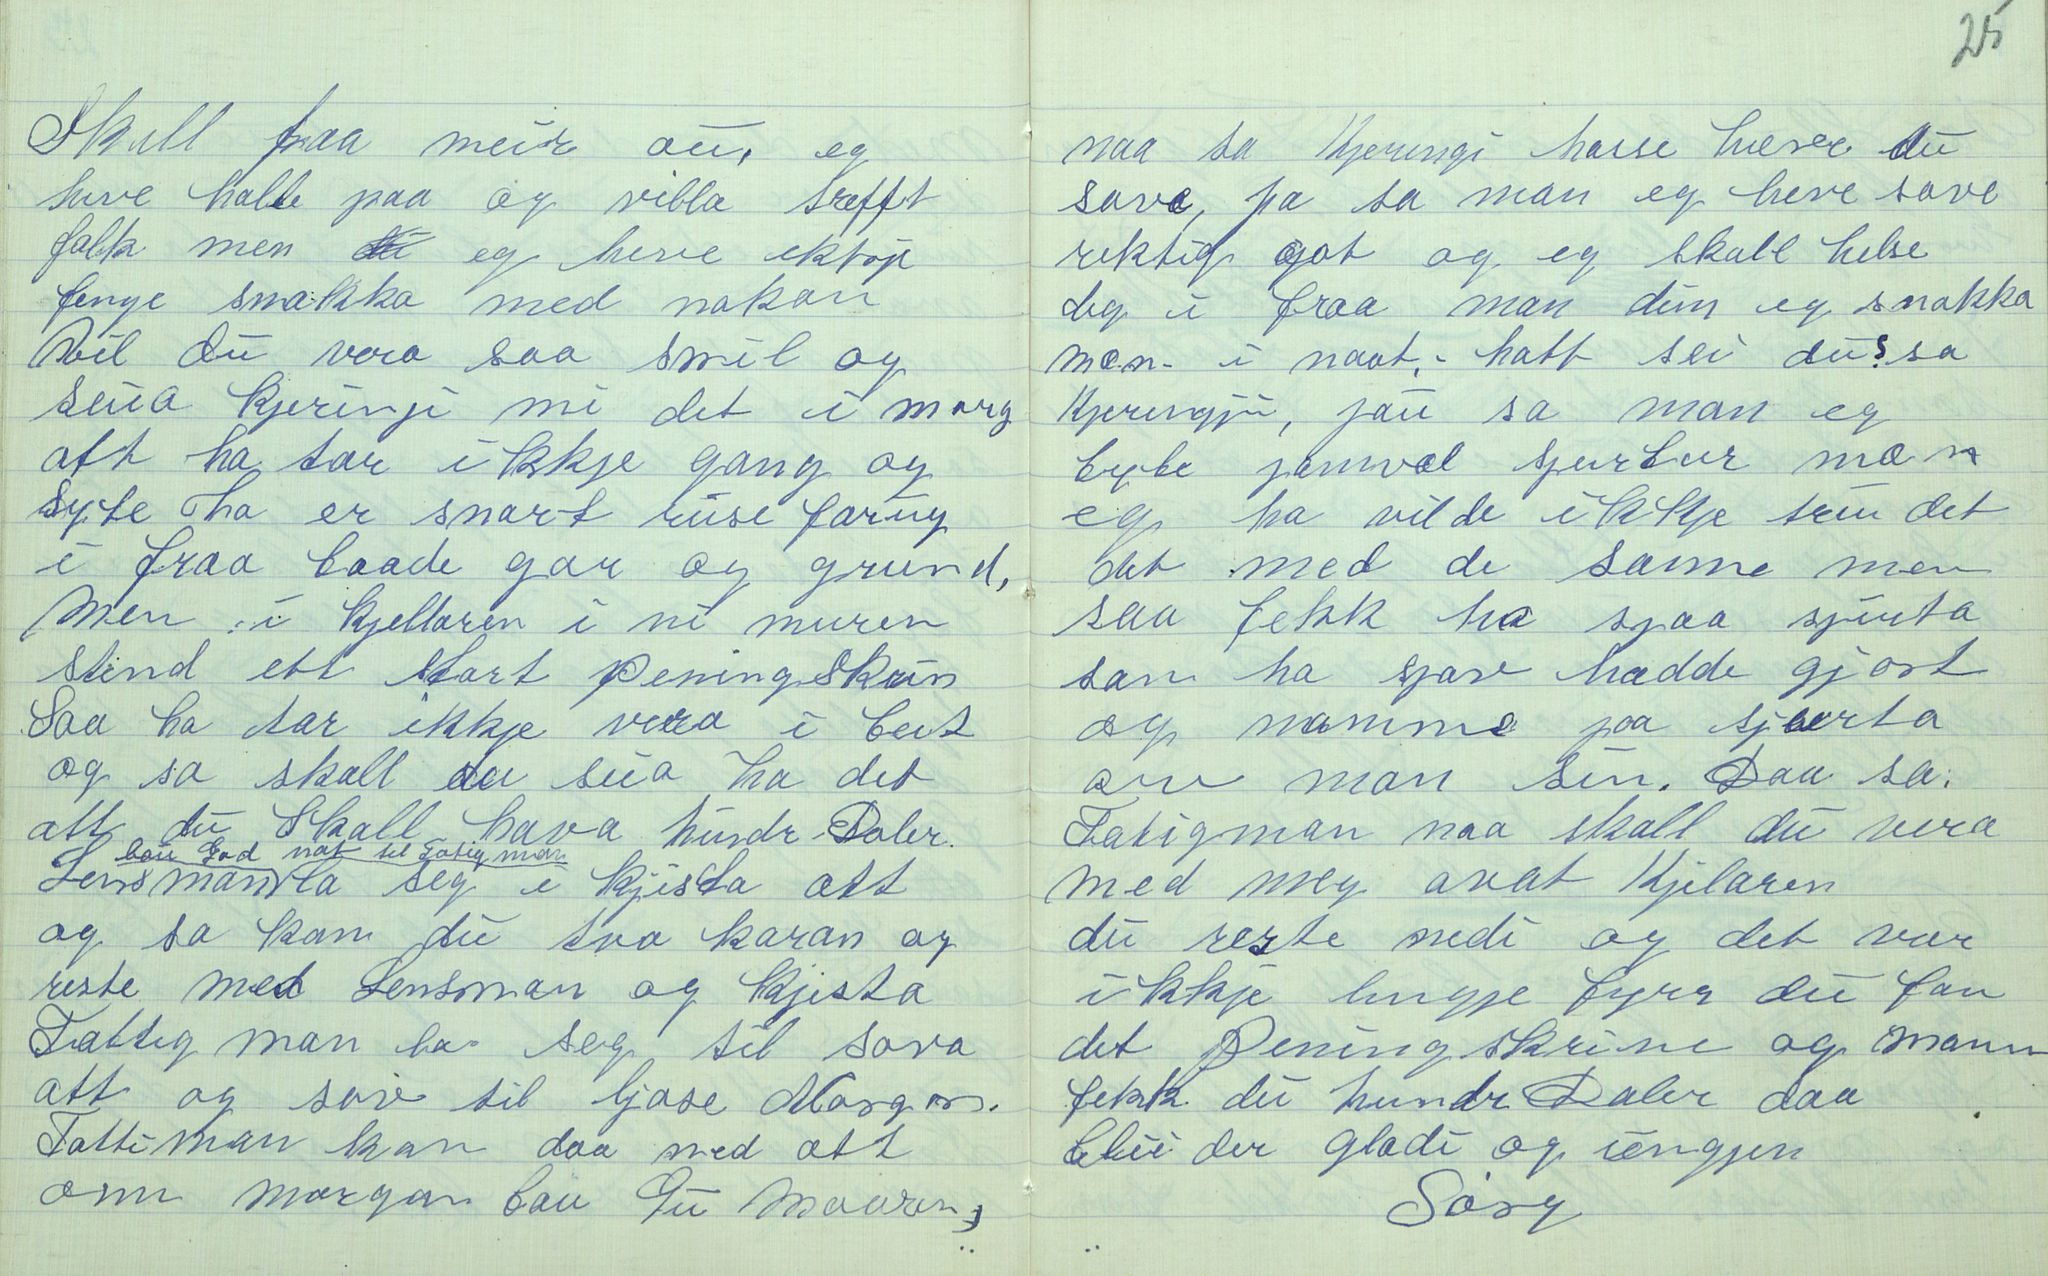 Skull fraa meir ou, eg
heve halle paa og villa trefft
falk men eg heve ektöje
fenge snakka med nokon
Vil du vera saa snil og
seua kjeringi mi det i morg
att ha tar ikkje gang og
syte ha er snart ruse farug
i fraa baade gar og grund,
Men i kjellaren i ni muren
stend ett stort peningskrin
Saa ha tar ikkje vera i beit
og sa skall du sua ha det
att du skall hava hundr Daler.
bau God nat til Fatigman
Lensman la seg i kjista att
og sa kom du tvo karan og
reste med Lensman og kjista
Fattig man la seg til sova
att og sov til ljose Morgon.
Fattiman kom daa ned att
om morgon bau Gu Moorn,
25
naa sa Kjeringi hosse hever du
sove, ja sa man eg heve sove
rektig got og eg skall helse
deg i fraa man din eg snakka
mæn i naat, hatt sei du? sa
Kjeringji, jau sa man eg
bytte jamvel sjurtur mæn
eg ha vilde ikkje truu det
det med de samme men
saa fekk ha sjaa sjurta
som ha sjøv hadde gjort
og namme paa sjurta
av man sin. Daa sa
Fatigman naa skall du vera
med meg avat Kjelaren
du reste nedi og det var
ikkje lengje fyrr du fan
det Peningskrine og mann
fekk du hundr Daler daa
bleii der gladi og iengjen
Sorg